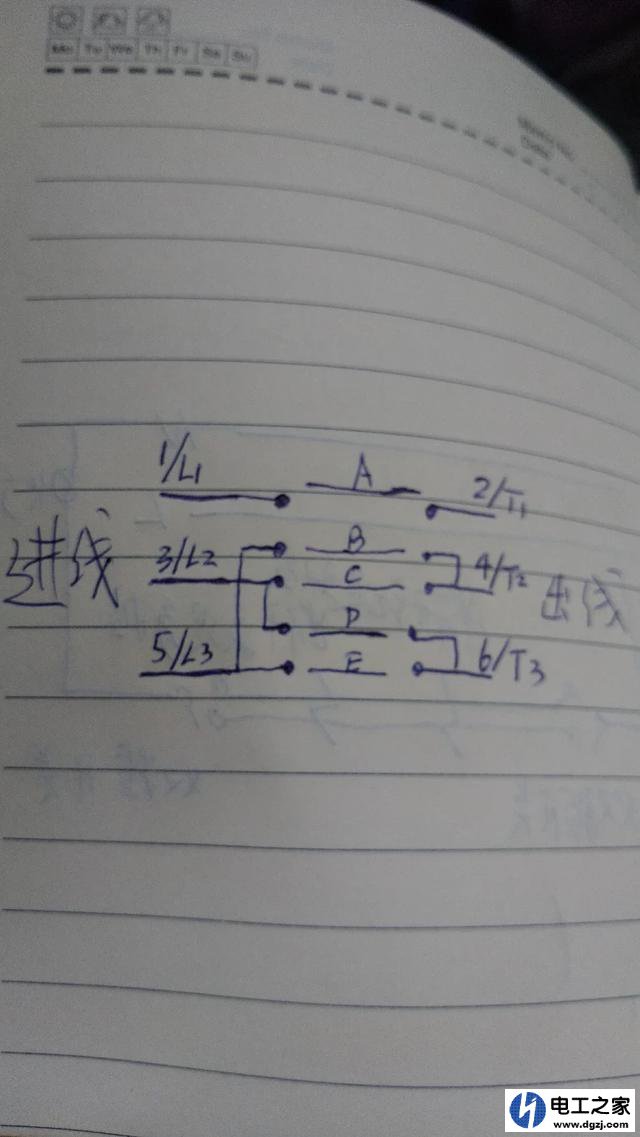 Mo Tu We Th Fr Sa Su
Memo No.
Date
1/L1 A 2/T1
B
进线 3/L2 C 4/T2 出线
D
5/L3 E 6/T3
电工之家
www.dgzj.com